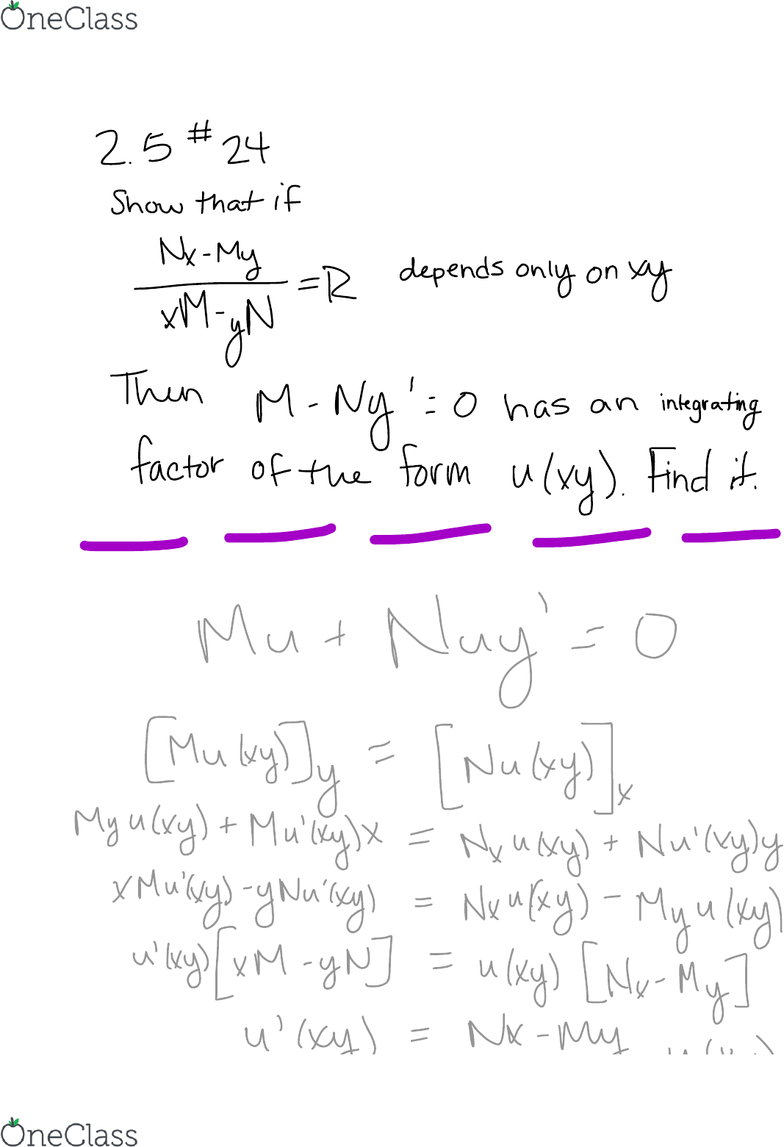 OneClass
2.5 #24
Show that if
Nx-My
xM-yN
=R depends only on xy
Then M - Ny' = 0 has an integrating
factor of the form u(xy). Find it.
Mu + Nuy' = 0
[Mu(xy)]y = [Nu(xy)]x
Myu(xy) + Mu'(xy)x = Nxu(xy) + Nu'(xy)y
xMu'(xy) - yNu'(xy) = Nxu(xy) - Myu(xy)
u'(xy)[xM - yN] = u(xy) [Nx - My]
u'(xy) = Nx - My
OneClass